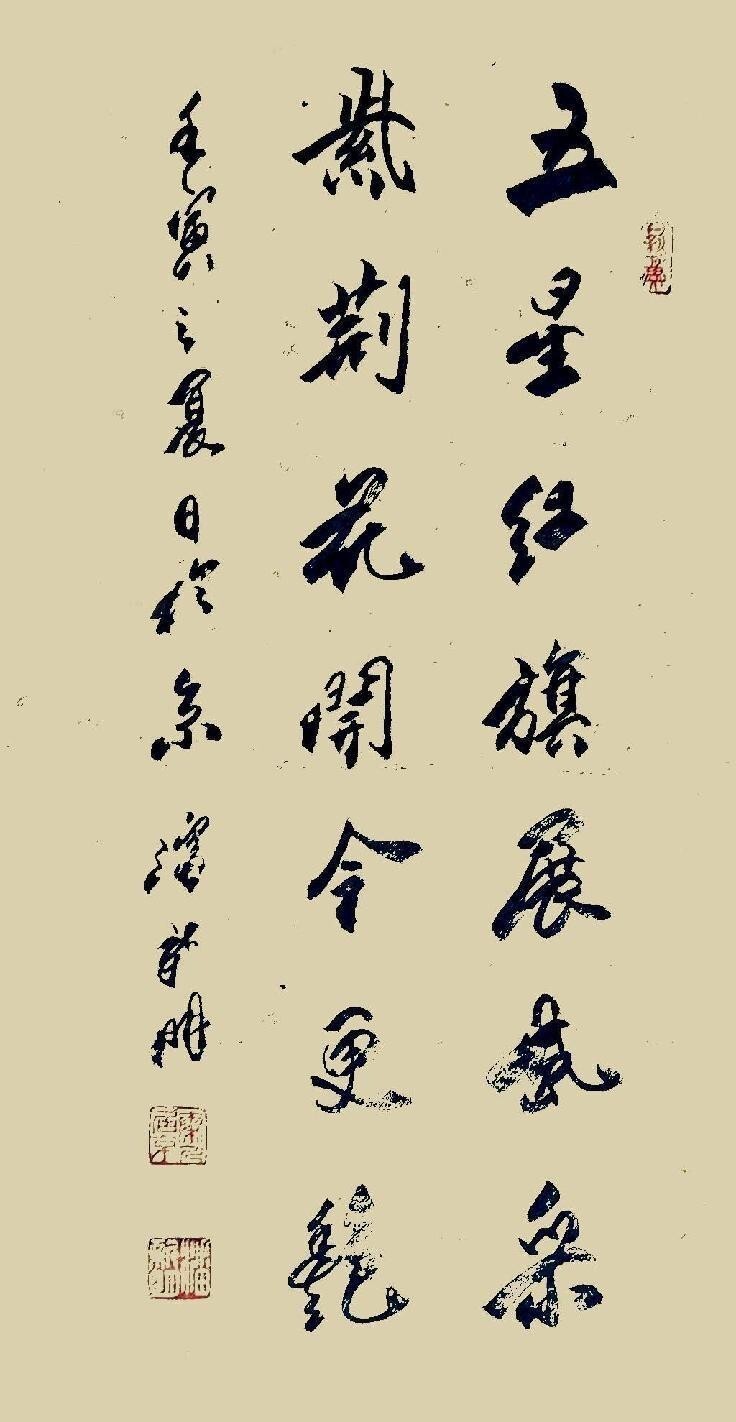 五星紅旗展采
紫荊花開今更艷
壬寅之夏日於京潘明